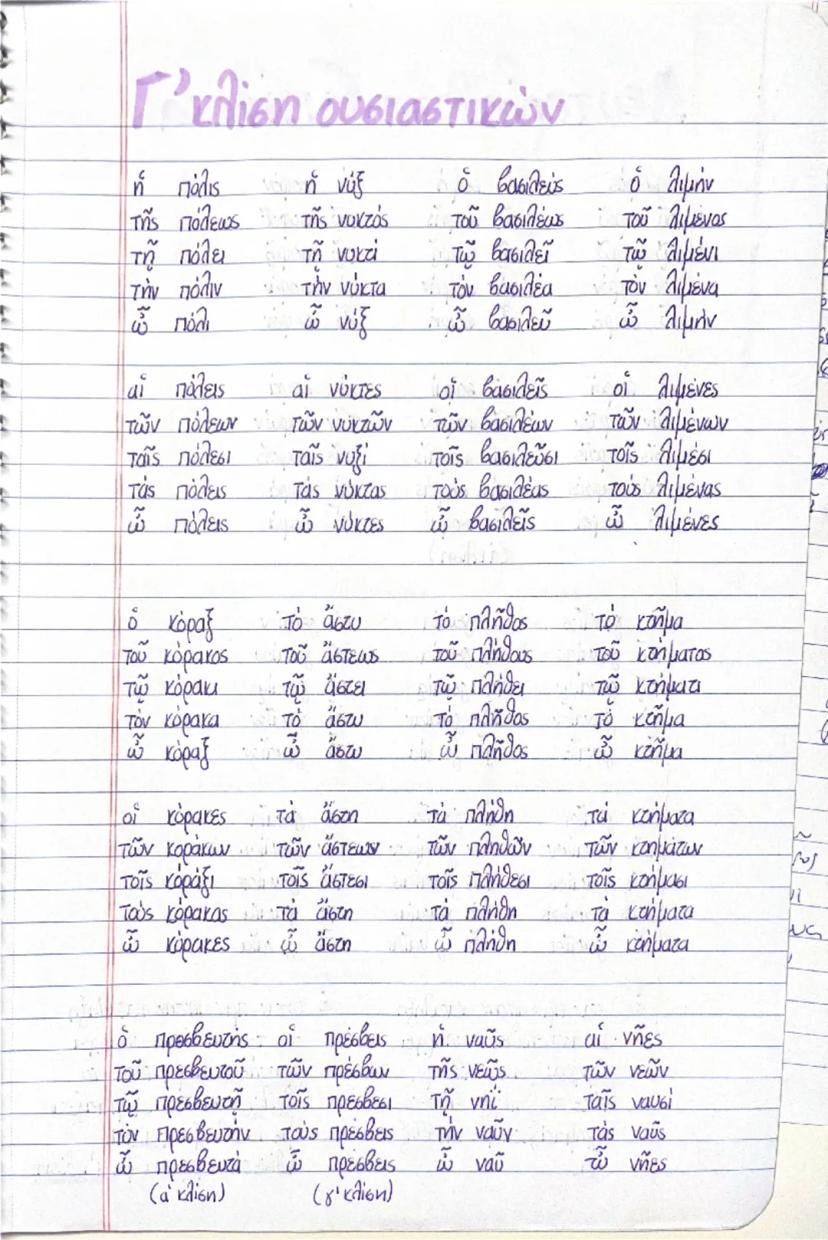 Γ' κλίση ουσιαστικών
ἡ πόλις ἡ νύξ ὁ βασιλεύς ὁ λιμήν
τῆς πόλεως τῆς νυκτός τοῦ βασιλέως τοῦ λιμένος
τῇ πόλει τῇ νυκτί τῷ βασιλεῖ τῷ λιμένι
τὴν πόλιν τὴν νύκτα τὸν βασιλέα τὸν λιμένα
ὦ πόλι ὦ νύξ ὦ βασιλεῦ ὦ λιμήν
αἱ πόλεις αἱ νύκτες οἱ βασιλεῖς οἱ λιμένες
τῶν πόλεων τῶν νυκτῶν τῶν βασιλέων τῶν λιμένων
ταῖς πόλεσι ταῖς νυξί τοῖς βασιλεῦσι τοῖς λιμέσι
τάς πόλεις τάς νύκτας τούς βασιλέας τούς λιμένας
ὦ πόλεις ὦ νύκτες ὦ βασιλεῖς ὦ λιμένες
ὁ κόραξ τό ἄστυ τό πλῆθος τό κτῆμα
τοῦ κόρακος τοῦ ἄστεως τοῦ πλήθους τοῦ κτήματος
τῷ κόρακι τῷ ἄστει τῷ πλήθει τῷ κτήματι
τόν κόρακα τό ἄστυ τό πλῆθος τό κτῆμα
ὦ κόραξ ὦ ἄστυ ὦ πλῆθος ὦ κτῆμα
οἱ κόρακες τά ἄστη τά πλήθη τά κτήματα
τῶν κοράκων τῶν ἄστεων τῶν πληθῶν τῶν κτημάτων
τοῖς κόραξι τοῖς ἄστεσι τοῖς πλήθεσι τοῖς κτήμασι
τούς κόρακας τά ἄστη τά πλήθη τά κτήματα
ὦ κόρακες ὦ ἄστη ὦ πλήθη ὦ κτήματα
ὁ πρεσβευτής οἱ πρέσβεις ἡ ναῦς αἱ νῆες
τοῦ πρεσβευτοῦ τῶν πρέσβων τῆς νεώς τῶν νεῶν
τῷ πρεσβευτῇ τοῖς πρέσβεσι τῇ νηί ταῖς ναυσί
τόν πρεσβευτήν τούς πρέσβεις τήν ναῦν τάς ναῦς
ὦ πρεσβευτά ὦ πρέσβεις ὦ ναῦ ὦ νῆες
(α' κλίση) (γ' κλίση)